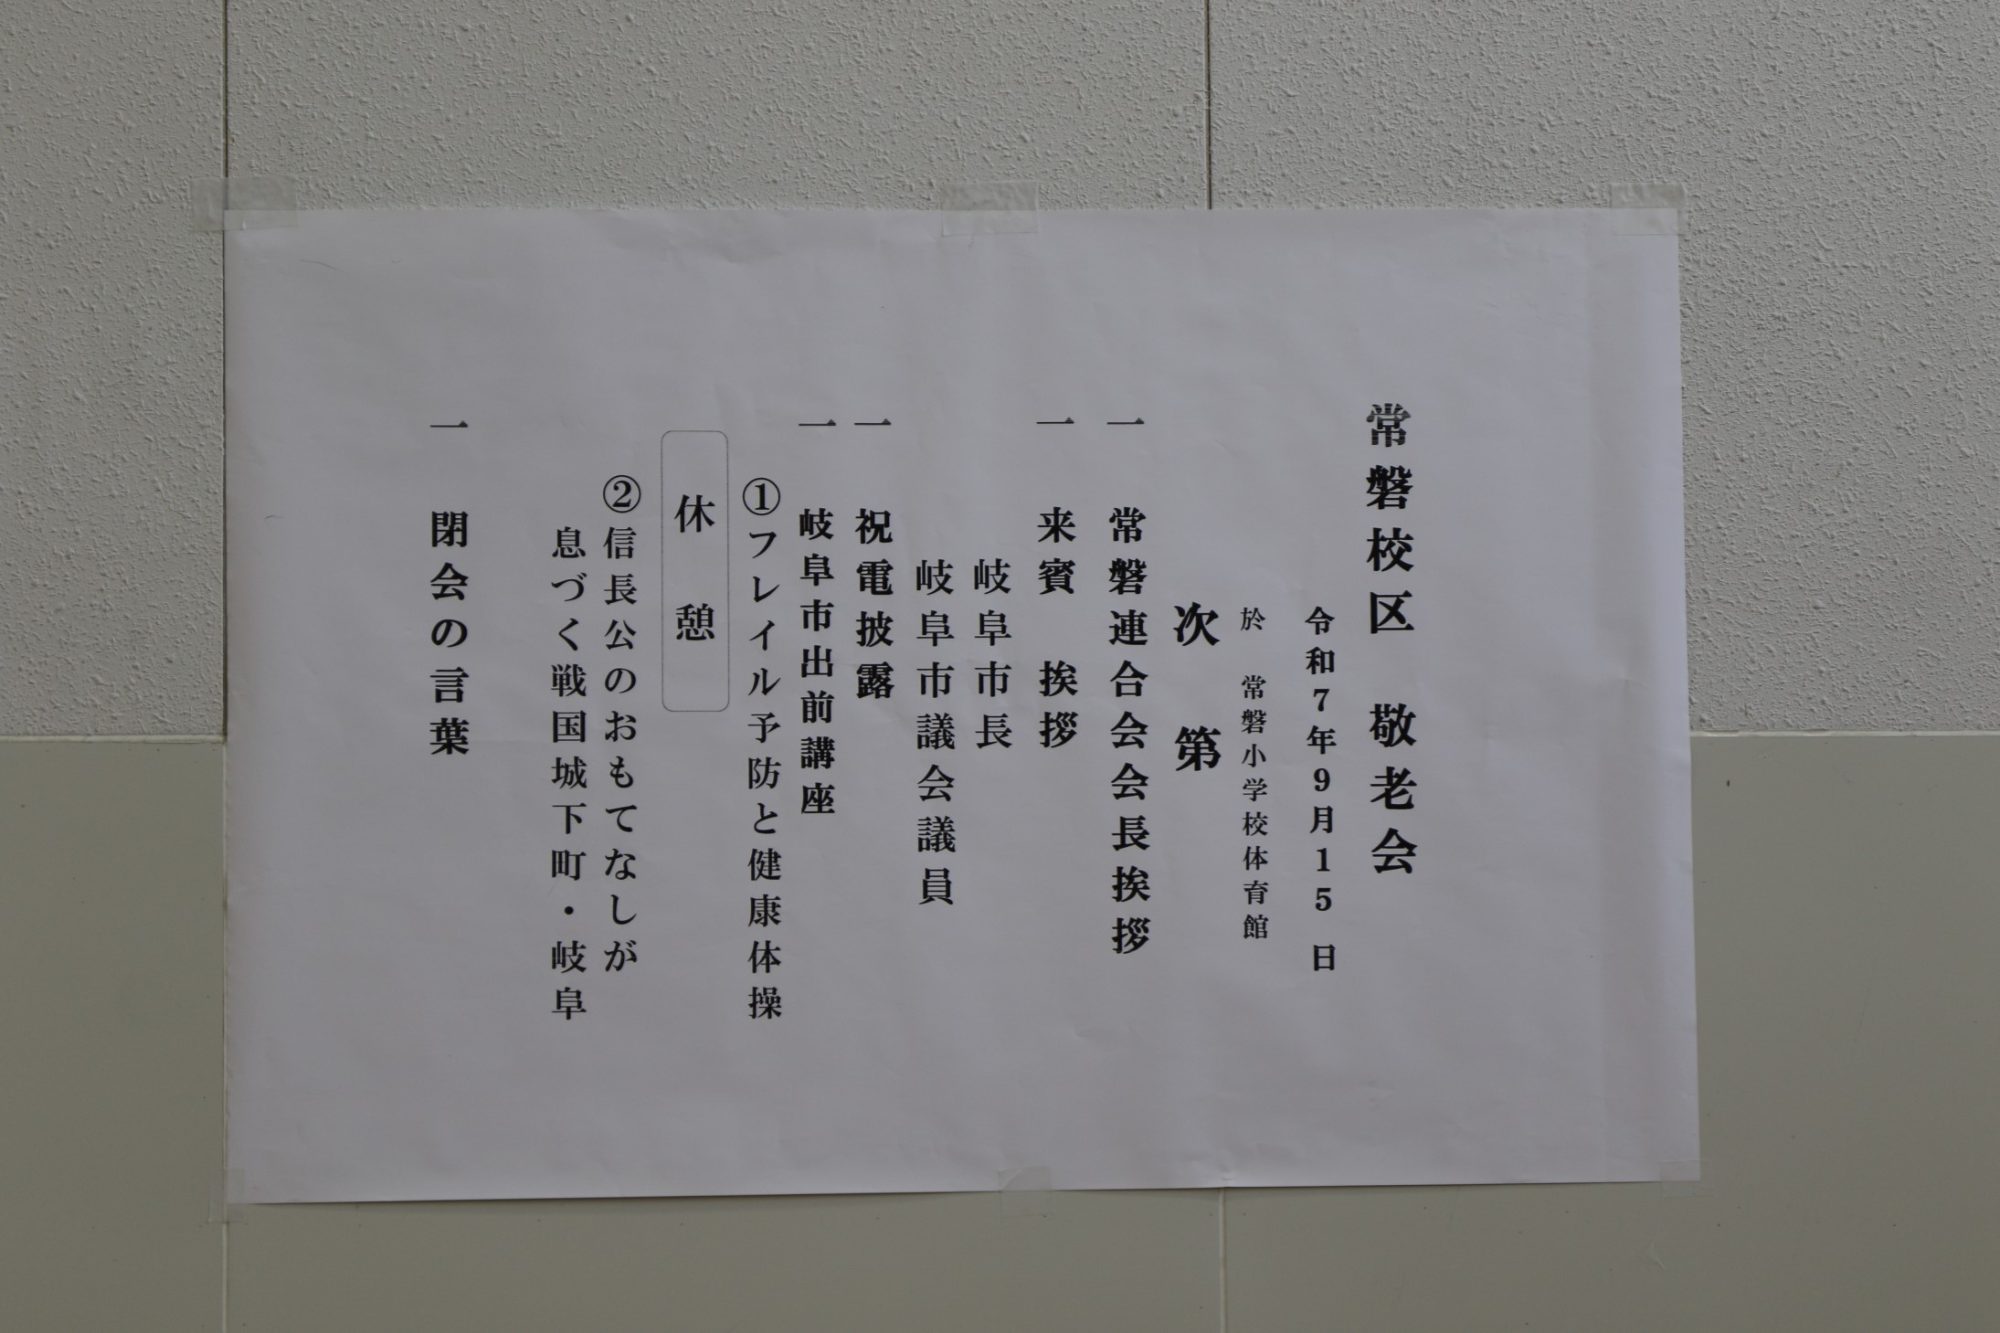 常磐校区　敬老会
令和7年9月15日
於　常磐小学校体育館
次　第
一　常磐連合会会長挨拶
一　来賓　挨拶
岐阜市長
岐阜市議会議員
一　祝電披露
一　岐阜市出前講座
①フレイル予防と健康体操
休　憩
②信長公のおもてなしが
息づく戦国城下町・岐阜
一　閉会の言葉